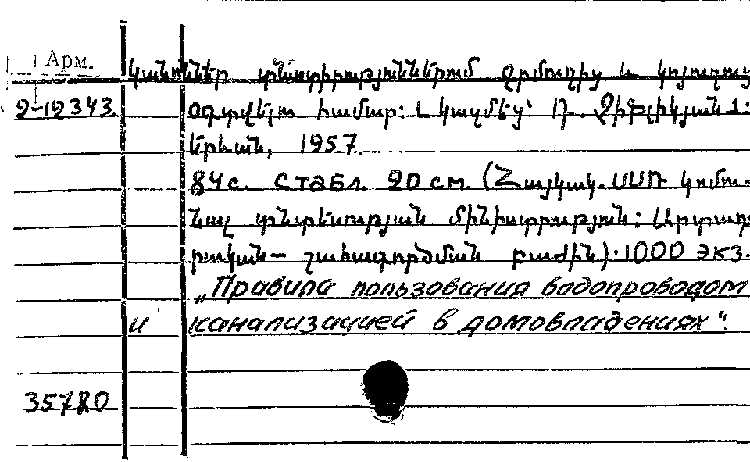 Арм.
Կանոններ տնտիրություններում ջրմուղից և կոյուղուց
2-12343 օգտվելու համար: Լ կազմեց՝ Ռ. Չիֆլիկյան 1:
Երևան, 1957.
84 с. с табл. 20 см. (Հայկական ՍՍՌ կոմու-
նալ տնտեսության մինիստրություն: Արտադ-
րական- շահագործման բաժին). 1000 экз.
„Правила пользования водопроводом
и канализацией в домовладениях".
35780